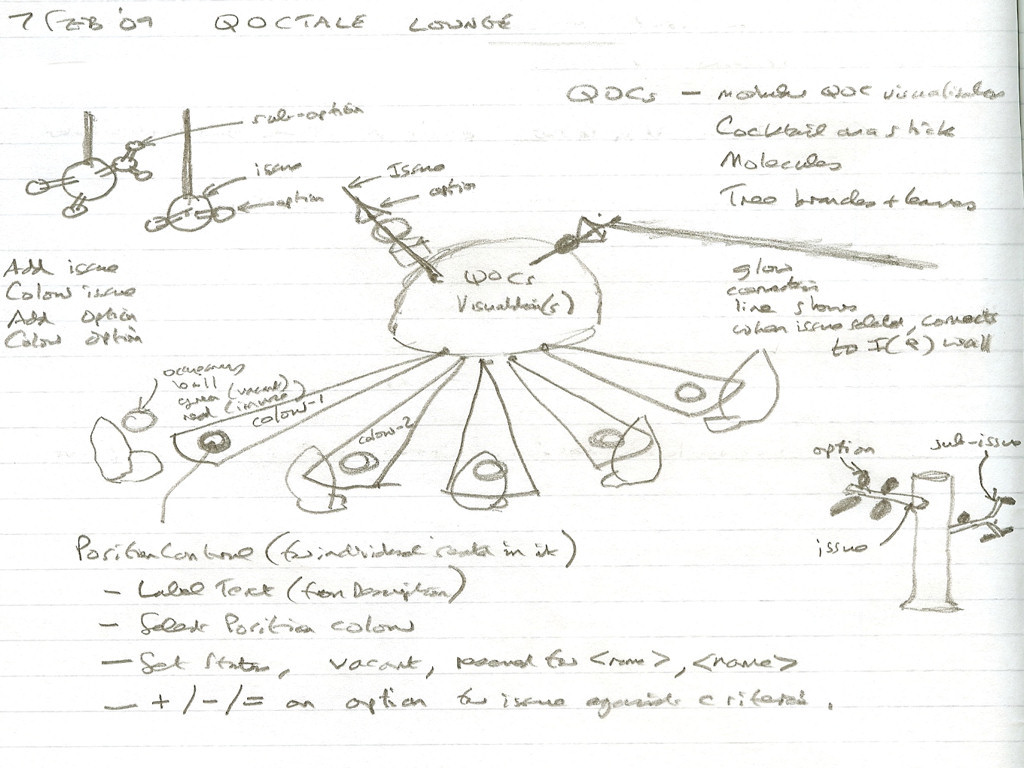 7 FEB '09 QOCTALE LOUNGE
QOCs - modular QOC visualisation
Cocktail on a stick
Molecules
Tree branches + leaves
sub-option
issue
option
Issue
option
Add issue
Colour issue
Add option
Colour option
QOCs
Visualisation(s)
glow
connection
line shows
when issue selected, connects
to I(Q) wall
occupancy
ball
green (vacant)
red (in use)
colour-1
colour-2
option
sub-issue
issue
Position Control (for individual seated in it)
- Label Text (from Description)
- Select Position colour
- Set Status, vacant, reserved for <name>, <name>
- + / - / = on option for issue against criteria.